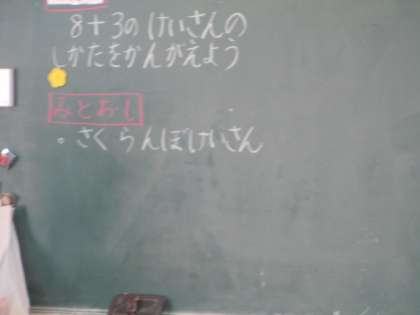 8+3のけいさんの
しかたをかんがえよう
みとおし
・さくらんぼけいさん